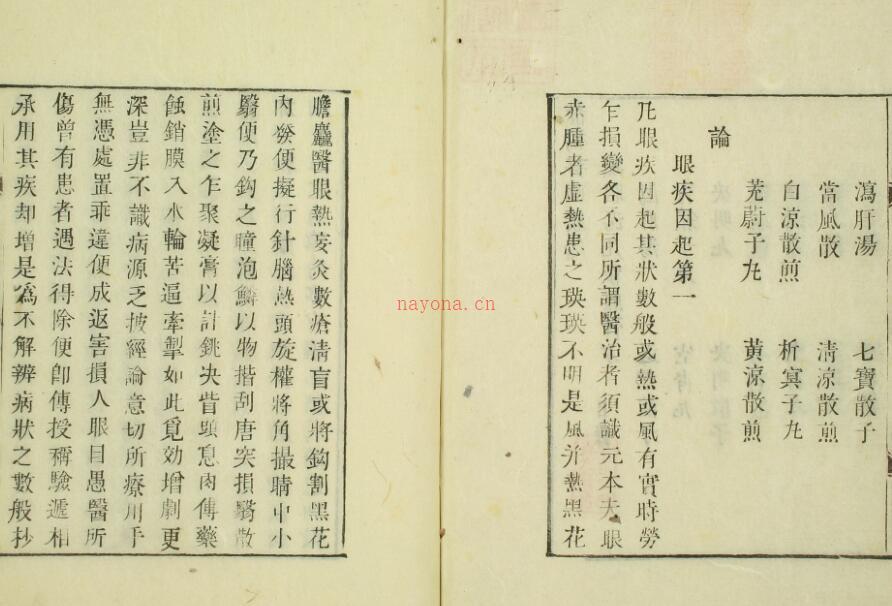 瀉肝湯 七寶散子
當風散 清涼散煎
白涼散煎 析寞子丸
茺蔚子丸 黃涼散煎
論
眼疾因起第一
凡眼疾因起其狀數般或熱或風有實時勞
乍損變各不同所謂醫治者須識元本夫眼
赤腫者虛熱患之瑛瑛不明是風并熱黑花
膽麤醫眼熱妄灸數瘡淸盲或將鈎割黑花
內發便擬行針腦熱頭旋權將角撮睛中小
翳便乃鈎之瞳泡鱗以物揩刮唐突損翳散
煎塗之乍聚凝膏以計銚决眥頭息肉傅藥
蝕銷膜入水輪苦逼牽掣如此覓効增劇更
深豈非不識病源乏披經論意切所療用手
無憑處置乖違便成返害損人眼目愚醫所
傷曾有患者遇法得除便卽傳授稱驗遞相
承用其疾却增是爲不解辨病狀之數般抄
nayona.cn